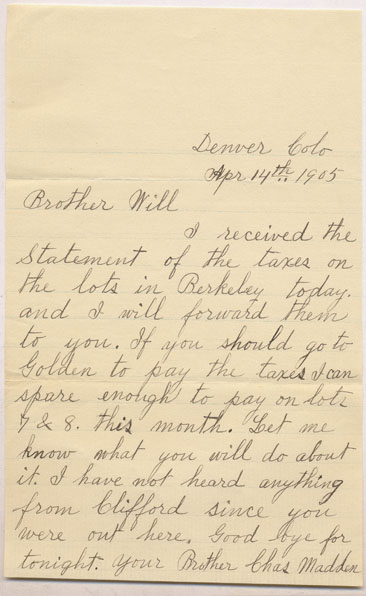 Denver Colo
Apr 14th 1905
Brother Will
I received the
Statement of the taxes on
the lots in Berkeley today.
and I will forward them
to you. If you should go to
Golden to pay the taxes I can
spare enough to pay on lots
7 & 8. this month. Let me
know what you will do about
it. I have not heard anything
from Clifford since you
were out here. Good bye for
tonight. Your Brother Chas Madden